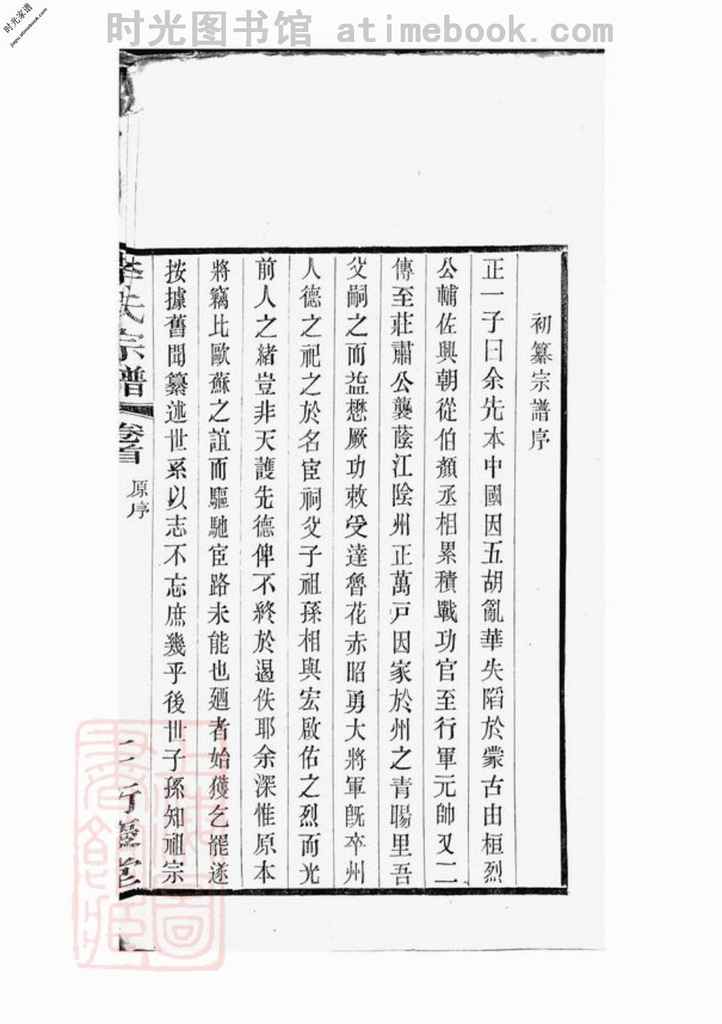 时光图书馆 atimebook.com
时光家谱
jiapu.atimebook.com
初纂宗譜序
正一子曰余先本中國因五胡亂華失陷於蒙古由桓烈
公輔佐興朝從伯顏丞相累積戰功官至行軍元帥又二
傳至莊肅公襲蔭江陰州正萬戸因家於州之青暘里吾
父嗣之而益懋厥功敕受達魯花赤昭勇大將軍旣卒州
人德之祀之於名宦祠父子祖孫相與宏啟佑之烈而光
前人之緒豈非天護先德俾不終於遏佚耶余深惟原本
將竊比歐蘇之誼而驅馳宦路未能也廼者始獲乞罷遂
按據舊聞纂述世系以志不忘庶幾乎後世子孫知祖宗
李氏宗譜
卷首
原序